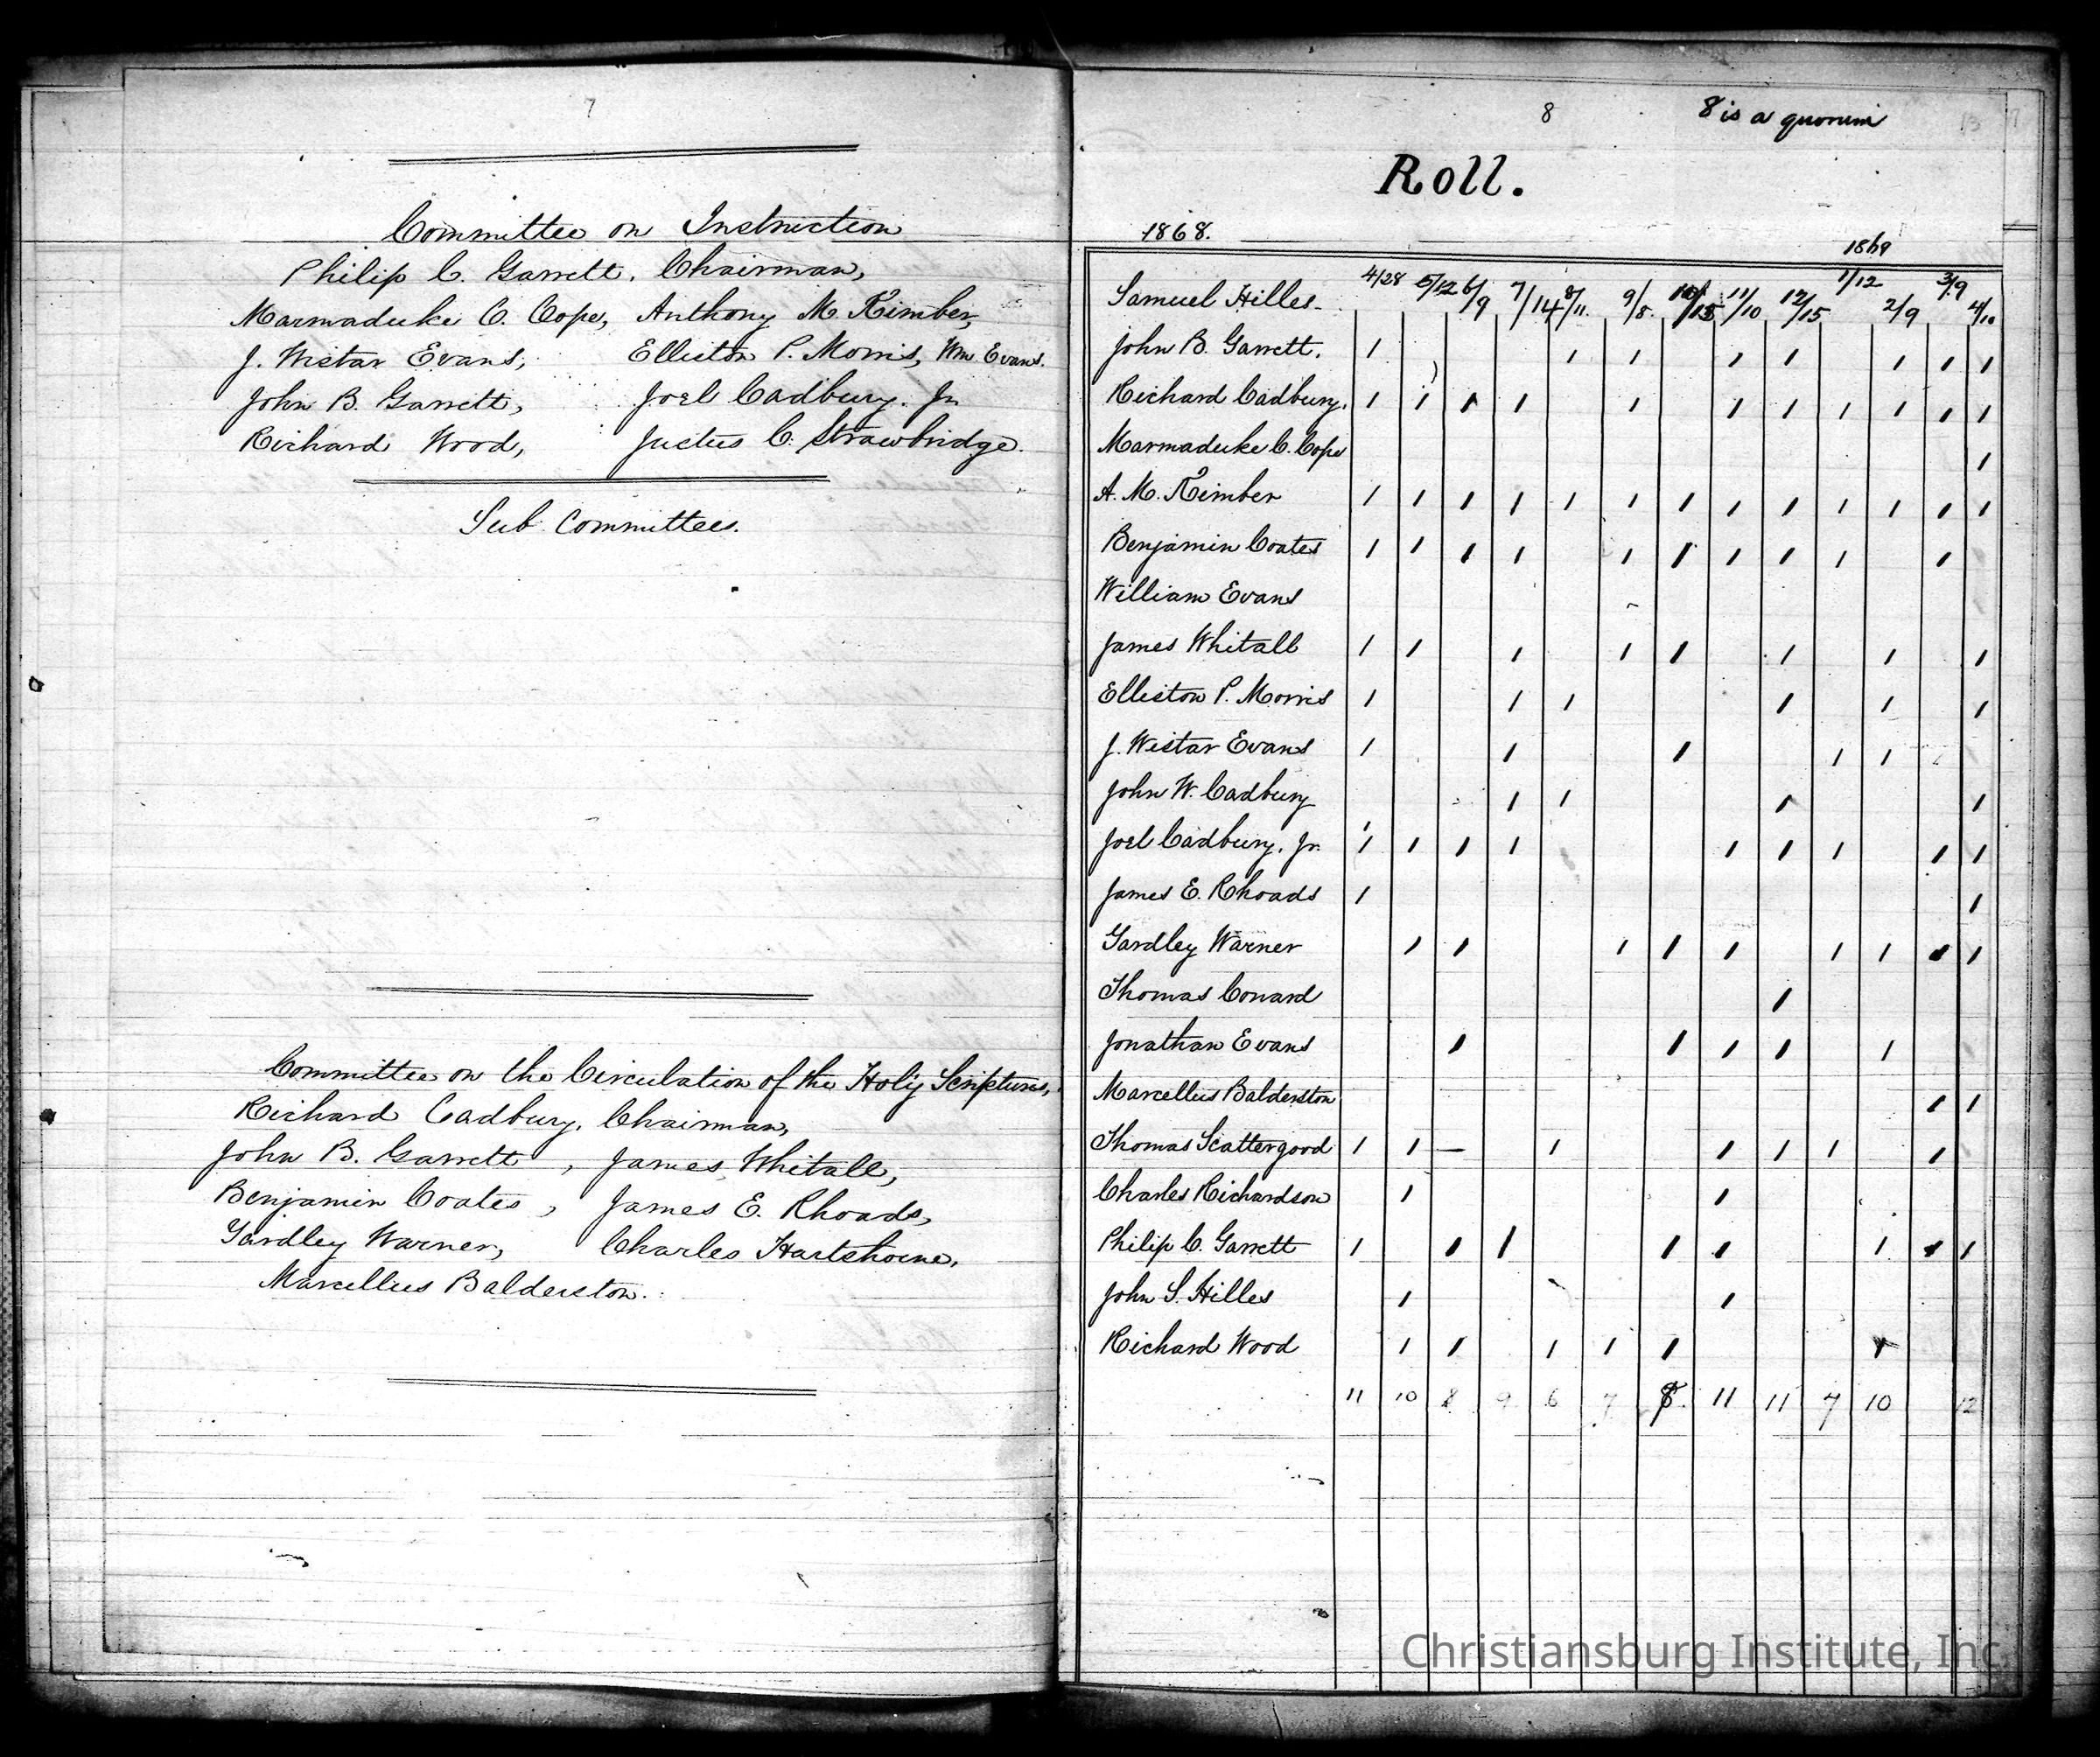 7
Committee on Instruction
Philip C. Garrett, Chairman,
Marmaduke C. Cope, Anthony M. Kimber,
J. Wistar Evans, Elliston P. Morris, Wm Evans.
John B. Garrett, Joel Cadbury. Jr
Richard Wood, Justus C. Strawbridge.
Sub Committees.
Committee on the Circulation of the Holy Scriptures,
Richard Cadbury, Chairman,
John B. Garrett, James Whitall,
Benjamin Coates, James E. Rhoads,
Yardley Warner, Charles Hartshorne,
Marcellus Balderston.
8
8 is a quorum
13
Roll.
1868.
1869
Samuel Hilles 4/28 5/12 6/9 7/14 8/11 9/8 10/13 11/10 12/15 1/12 2/9 3/9 4/10
John B. Garrett. 1 1 1 1 1 1 1 1
Richard Cadbury. 1 1 1 1 1 1 1 1 1 1 1
Marmaduke C. Cope 1
A. M. Kimber 1 1 1 1 1 1 1 1 1 1 1 1 1
Benjamin Coates 1 1 1 1 1 1 1 1 1 1
William Evans
James Whitall 1 1 1 1 1 1 1 1
Elliston P. Morris 1 1 1 1 1 1
J. Wistar Evans 1 1 1 1 1
John W. Cadbury 1 1 1 1
Joel Cadbury. Jr. 1 1 1 1 1 1 1 1 1
James E. Rhoads 1 1
Yardley Warner 1 1 1 1 1 1 1 1 1
Thomas Conard 1
Jonathan Evans 1 1 1 1 1
Marcellus Balderston 1 1
Thomas Scattergood 1 1 — 1 1 1 1 1
Charles Richardson 1 1
Philip C. Garrett 1 1 1 1 1 1 1 1
John S. Hilles 1 1
Richard Wood 1 1 1 1 1 1
11 10 8 9 6 7 8 11 11 7 10 12
Christiansburg Institute, Inc.